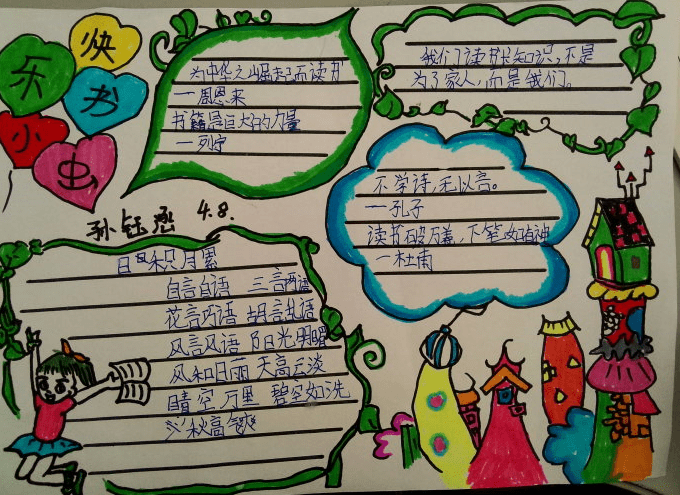 快
乐
书
小
虫
为中华之崛起而读书
一周恩来
书籍是巨大的力量
一列宁
我们读书长知识,不是
为了家人,而是我们。
不学诗,无以言。
一孔子
读书破万卷,下笔如有神
一杜甫
4.8.
日积月累
自言自语 三言两语
花言巧语 胡言乱语
风言风语 阳光明媚
风和日丽 天高云淡
晴空万里 碧空如洗
秋高气爽